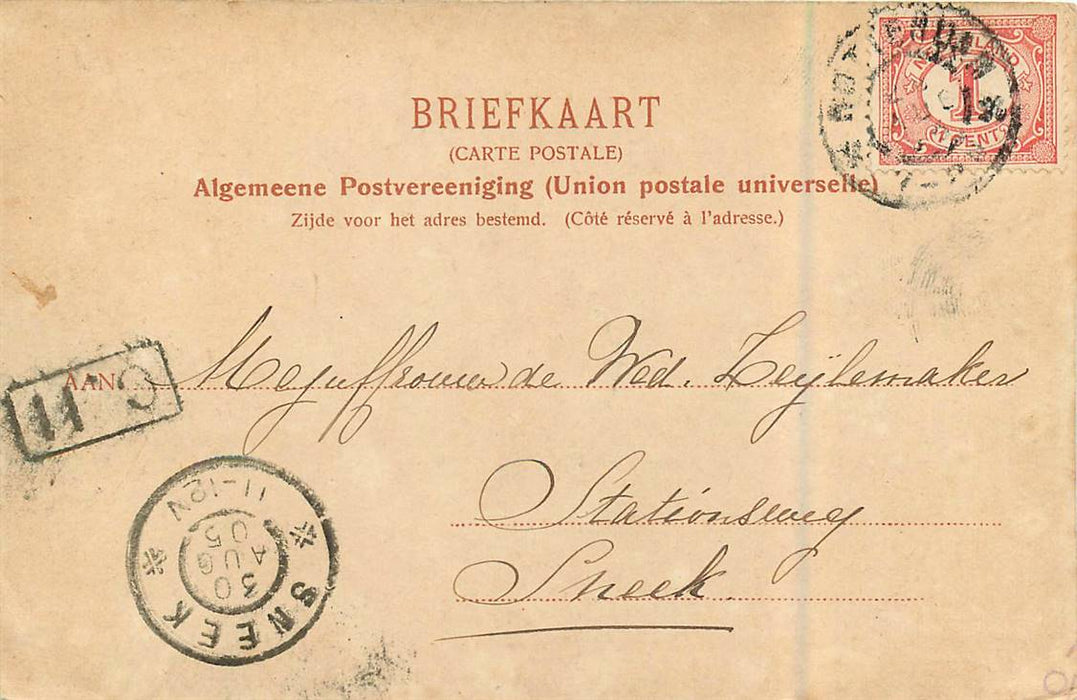 BRIEFKAART
(CARTE POSTALE)
Algemeene Postvereeniging (Union postale universelle)
Zijde voor het adres bestemd. (Côté réservé à l'adresse.)
NEDERLAND
1
CENT
AAN Mejuffrouw de Wed. Zeijlemaker
Stationsweg
Sneek.
11
SNEEK
30
AUG
05
11-12V